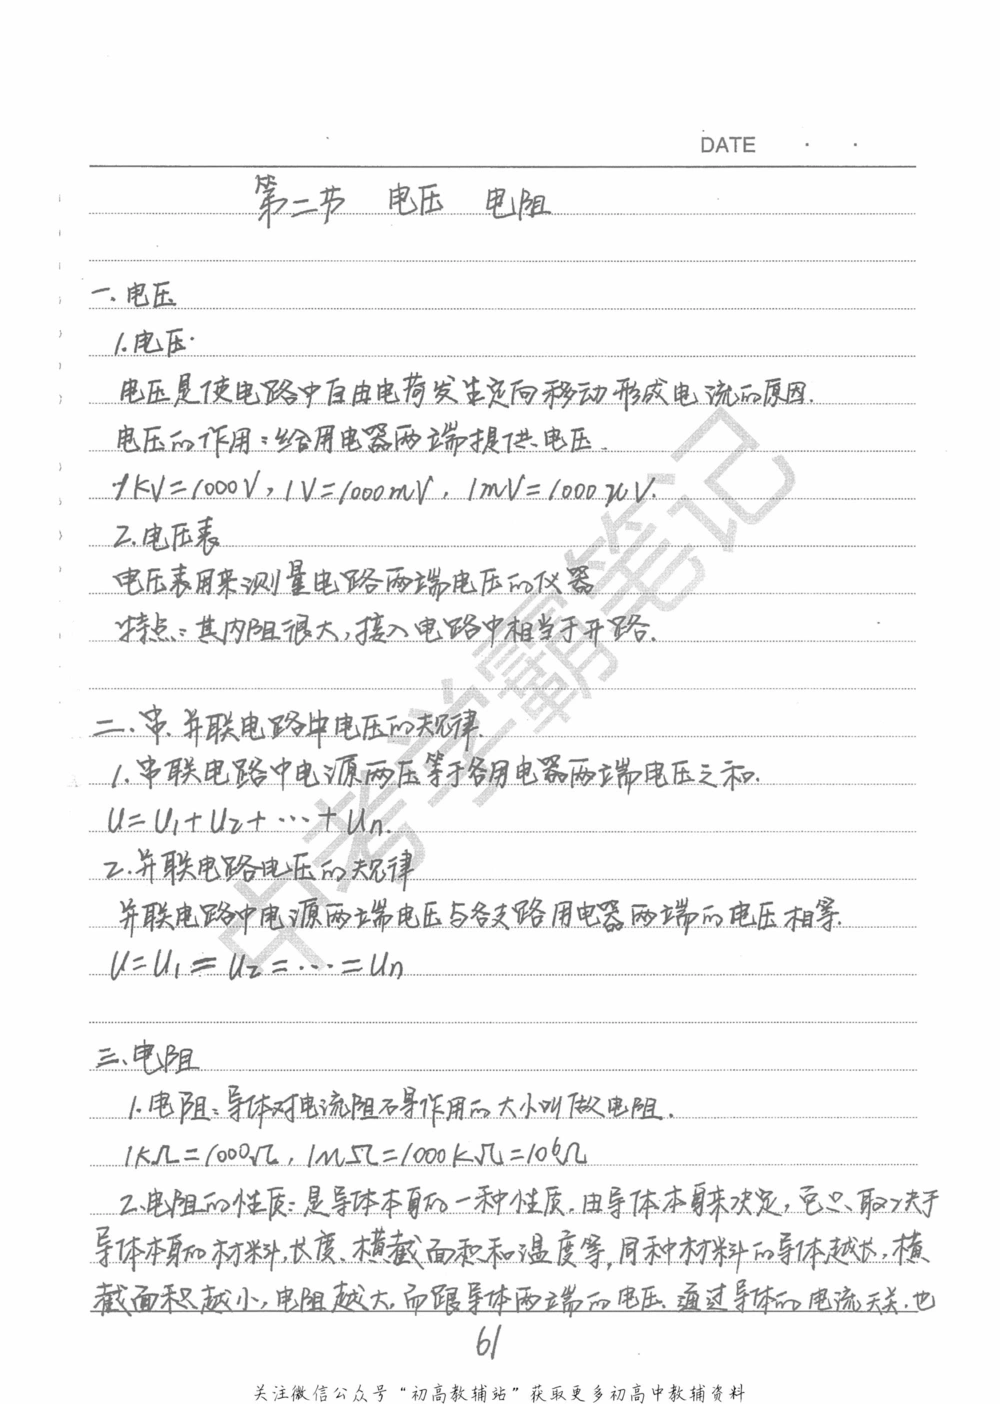 DATE · ·
第二节 电压 电阻
一.电压
1.电压.
电压是使电路中自由电荷发生定向移动形成电流的原因.
电压的作用：给用电器两端提供电压.
1KV=1000V，1V=1000mV，1mV=1000μV.
2.电压表
电压表用来测量电路两端电压的仪器
特点：其内阻很大，接入电路中相当于开路.
二、串.并联电路中电压的规律.
1.串联电路中电源两压等于各用电器两端电压之和.
U=U₁+U₂+···+Un.
2.并联电路电压的规律
并联电路中电源两端电压与各支路用电器两端的电压相等.
U=U₁=U₂=···=Un
三、电阻
1.电阻：导体对电流阻碍作用的大小叫做电阻.
1KΩ=1000Ω，1MΩ=1000KΩ=10⁶Ω
2.电阻的性质：是导体本身的一种性质.由导体本身来决定，它只取决于
导体本身的材料，长度、横截面积和温度等，同种材料的导体越长，横
截面积越小，电阻越大.而跟导体两端的电压.通过导体的电流无关.也
61
关注微信公众号“初高教辅站”获取更多初高中教辅资料
中考学霸笔记